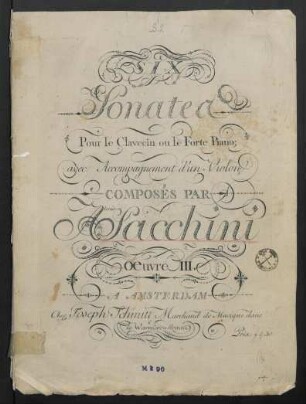 SIX
Sonates
Pour le Clavecin ou le Forte Piano;
avec Accompagnement d'un Violon
COMPOSÉS PAR
A. Sacchini
Oeuvre III.
A AMSTERDAM
Chez Joseph Schmitt Marchand de Musique dans
le Warmoes-Straat
Prix